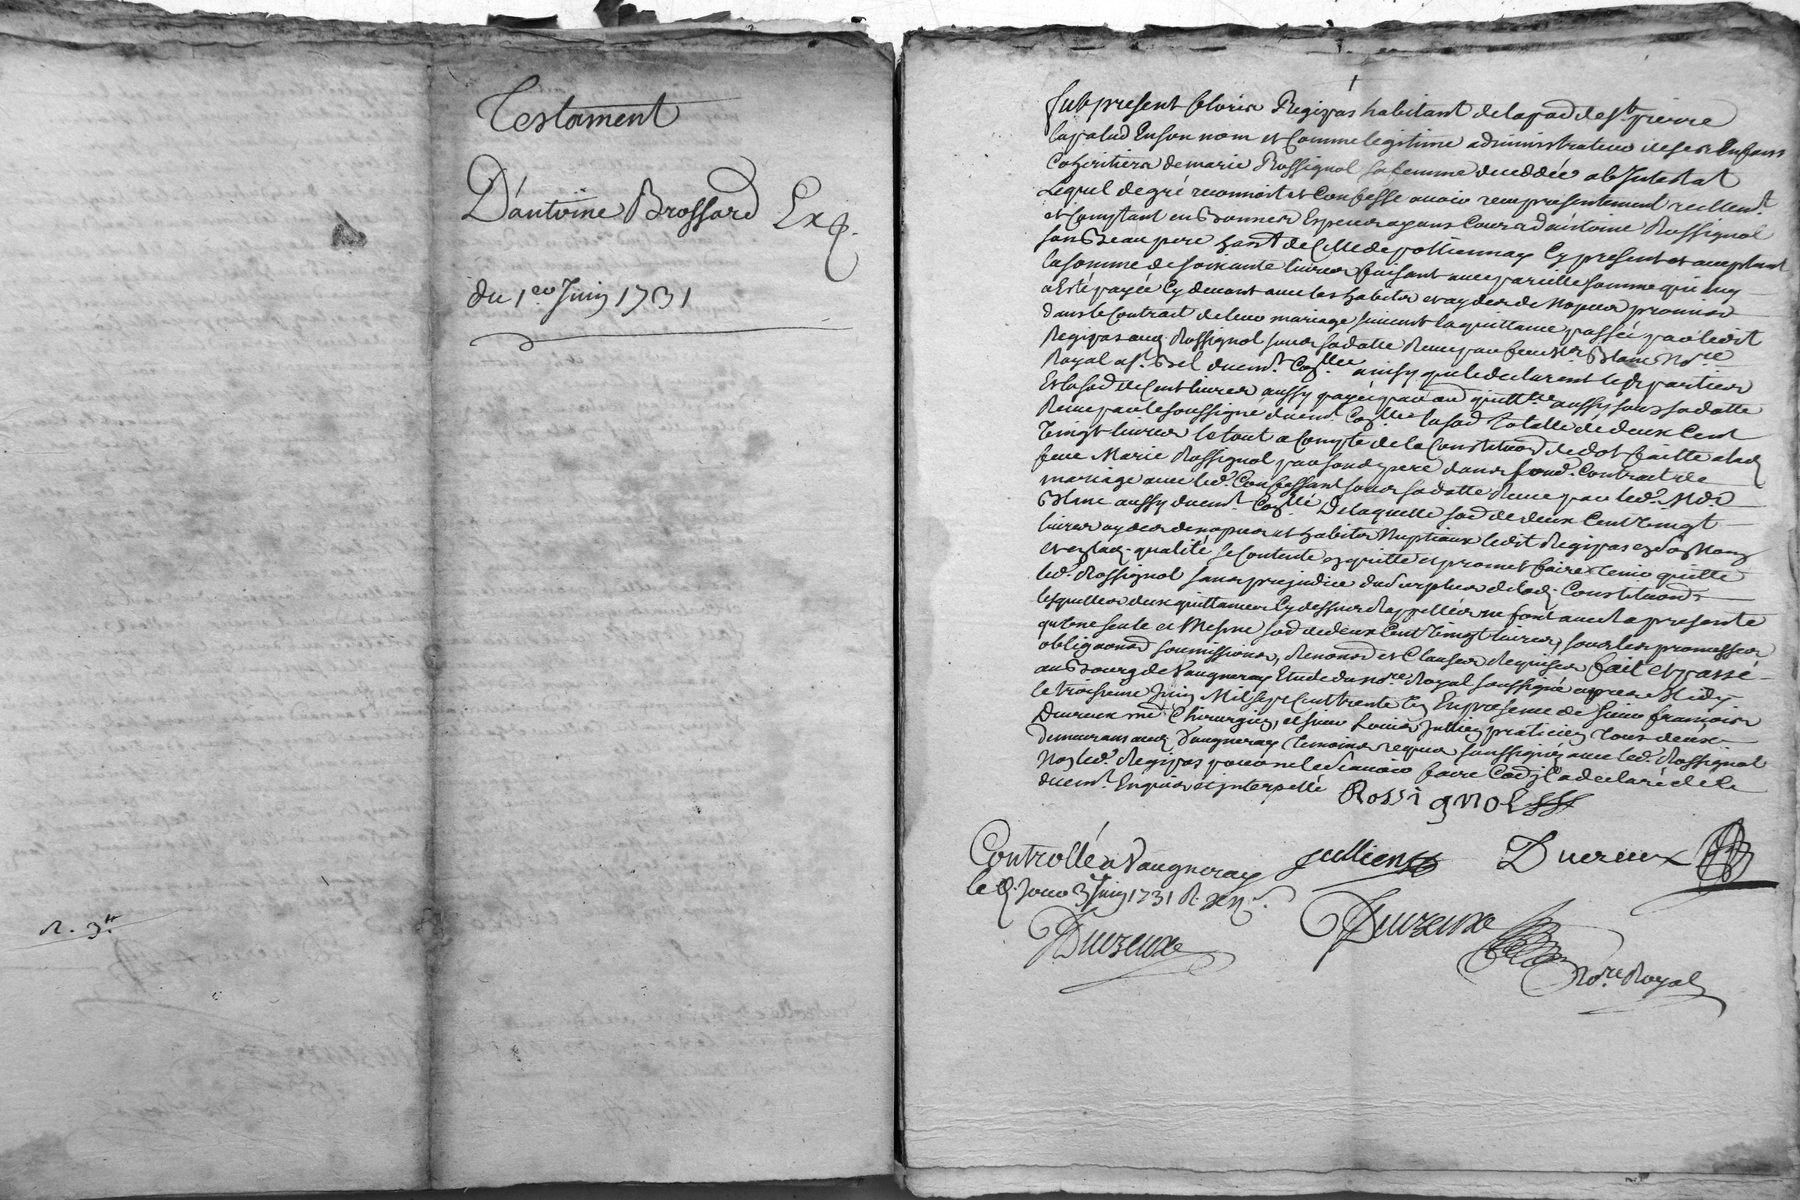 Testament
D'antoine Brossard Exp.
du 1er Juin 1731
R. 3tt
fut present Claris Regipas habitant de la parod de st pierre
lapalud En son nom et Comme legitime administrateur de ses Enfans
Cohéritiers de marie Rossignol sa femme deceddée ab Intestat
Lequel de gré reconnoit et Confesse avoir reçu presentement reellemt
et Comptant en Bonnes Especes ayans Cours d'antoine Rossignol
son Beau pere hant de Pollionnay Cy present et acceptant
la somme de soixante livres faisant avec pareille somme qui luy
a Esté payée Cy devant avec les habits et aydes de nopces promis
dans le Contrait de leur mariage suivant la quittance passée par ledit
Regipas aud. Rossignol sous sa datte Reçue par feu Mr Blanc Nore
Royal a duemt Conllée ainsy que le declarent les parties
Et la sod de Cent livres aussy payée par quittce aussy sous sa datte
Reçue par le soussigné duemt Conllée la sod Totalle de deux Cent
Vingt livres le tout a Compte de la Constituon de dot faitte a lad.
feue Marie Rossignol par sond. pere dans sond. Contrait de
mariage avec led. Confessant sous sa datte Reçue par led. Me
Blanc aussy duemt Conllé De laquelle sod de deux Cent Vingt
livres aydes de nopces et habits Nuptiaux ledit Regipas esds Noms
et en lad. qualité se Contente en quitte et promet faire Tenir quitte
led. Rossignol sans prejudice du surplus de lad. Constituon
lesquelles deux quittances Cy dessus Rappellées ne font avec la presente
qu'une seule et Mesme sod de deux Cent Vingt livres, sous les promesses
obligaons soumissions, Renons et Clauses Requises fait et passé
au Bourg de Vaugneray Etude du nore Royal soussigné apres Midy
le troisieme Juin Mil sept Cent trente Un En presence de sieur françois
Ducreux me Chirurgien, et sieur Louis Jullien praticien Tous deux
demeurans aud. Vaugneray Temoins requis soussignés avec led. Rossignol
Non led. Regipas pour ne le sçavoir faire a declaré de ce
duemt Enquis et interpellé Rossignol
Controllé a Vaugneray Jullien Ducreux
le d. Jour 3 Juin 1731 R.
Ducreux Ducreux
Nore Royal